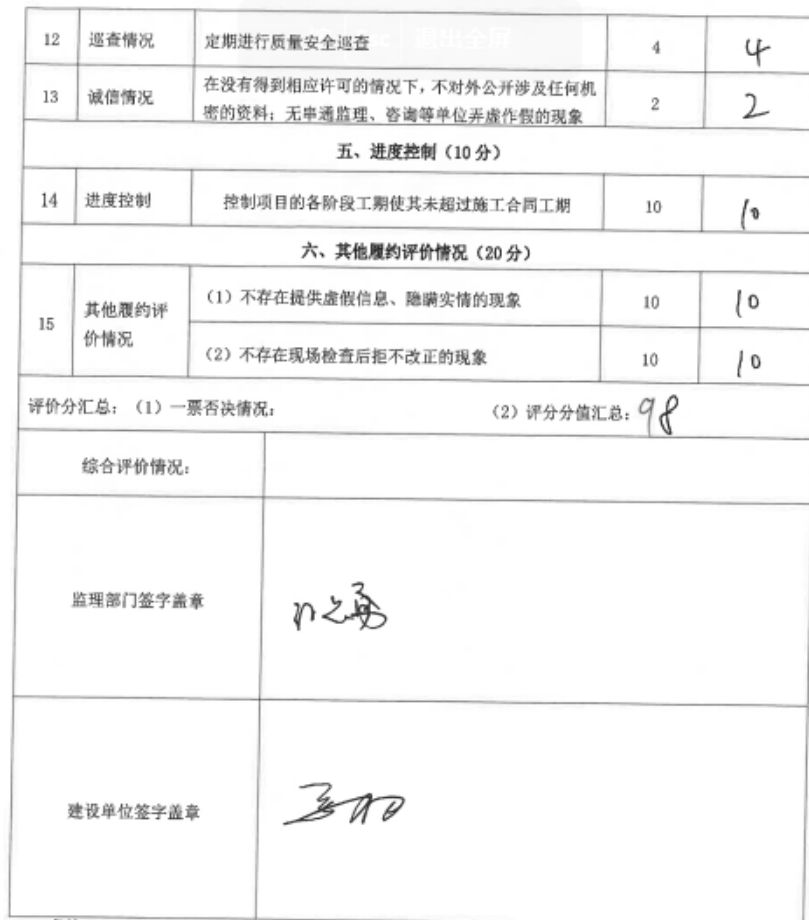 退出全屏
12 巡查情况 定期进行质量安全巡查 4 4
13 诚信情况 在没有得到相应许可的情况下，不对外公开涉及任何机
密的资料；无串通监理、咨询等单位弄虚作假的现象 2 2
五、进度控制（10 分）
14 进度控制 控制项目的各阶段工期使其未超过施工合同工期 10 10
六、其他履约评价情况（20 分）
15 其他履约评
价情况
（1）不存在提供虚假信息、隐瞒实情的现象 10 10
（2）不存在现场检查后拒不改正的现象 10 10
评价分汇总：（1）一票否决情况： （2）评分分值汇总：98
综合评价情况：
监理部门签字盖章
建设单位签字盖章